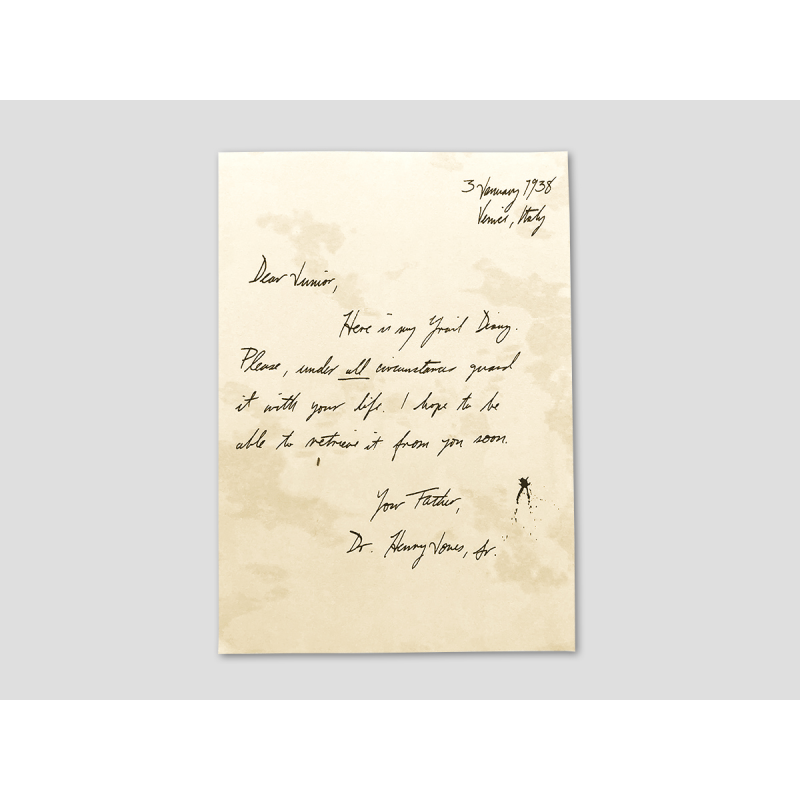 3 January 1938
Venice, Italy
Dear Junior,
Here is my Grail Diary.
Please, under all circumstances guard
it with your life. I hope to be
able to retrieve it from you soon.
Your Father,
Dr. Henry Jones, Sr.